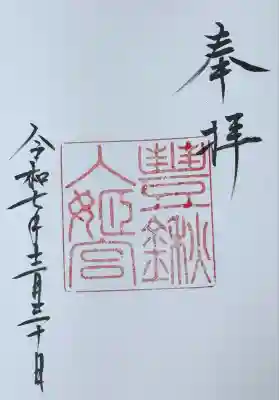 奉拝
豊鍬
入姫宮
令和七年十二月三十日